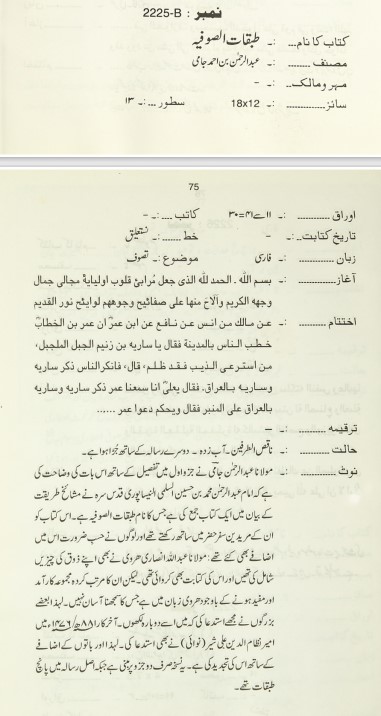 نمبر : 2225-B
کتاب کا نام... :۔ طبقات الصوفیہ
مصنف ........ :۔ عبدالرحمٰن بن احمد جامی
مہر و مالک.. :۔ –
سائز............ :۔ 18x12 سطور ...:۔ ۱۳
75
اوراق ............ :۔ ۱۱ سے ۴۱=۳۰ کاتب ....:۔ –
تاریخ کتابت.. :۔ – خط .......:۔ نستعلیق
زبان ............ :۔ فارسی موضوع :۔ تصوف
آغاز............. :۔ بسم اللہ ۔ الحمد للہ الذی جعل مرابیٔ قلوب اولیایهٔ مجالی جمال
وجهه الکریم وألاحَ منها علی صفائیح وجوههم لوایئح نور القدیم
اختتام .......... :۔ عن مالك من انس عن نافع عن ابن عمرؓ ان عمر بن الخطابؓ
خطب الناس بالمدینة فقال یا ساریه بن زنیم الجبل الملجبل،
من استرعی الذیب فقد ظلم، قال، فانکرالناس ذکر ساریه
وساریه بالعراق. فقال یعلیؓ انا سمعنا عمر ذکر ساریه وساریه
بالعراق علی المنبر فقال ویحکم دعوا عمر ......
ترقیمه .......... :۔ –
حالت ........... :۔ ناقص الطرفین۔ آب زدہ ۔ دوسرے رسالہ کے ساتھ جڑا ہوا ہے۔
نوٹ ............. :۔ مولانا عبدالرحمٰن جامیؒ نے جزو اول میں تفصیل کے ساتھ اس بات کی وضاحت کی
ہے کہ امام عبدالرحمٰن محمد بن حسین السلمی النیساپوری قدس سرہ نے مشائخ طریقت
کے بیان میں ایک کتاب جمع کی ہے جس کا نام طبقات الصوفیہ ہے۔ اس کتاب کو
ان کے مریدین سفر حضر میں ساتھ رکھتے تھے اور لوگوں نے حسب ضرورت اس میں
اضافے بھی کئے تھے: مولانا عبداللہ انصاری ھروی نے بھی اپنے ذوق کی چیزیں
شامل کی تھیں اور اس کی کتابت بھی کروائی تھی۔ لیکن ان کا مرتب کردہ مجموعہ کارآمد
اور مفید ہونے کے باوجود ھروی زبان میں ہے جس کا سمجھنا آسان نہیں۔ لہذا بعضے
بزرگوں نے مجھ سے استدعا کی کہ میں اسے دوبارہ لکھوں۔ آخر کار ۸۸۱ھ/۱۴۷۶ء میں
امیر نظام الدین علی شیر (نوائی) نے بھی استدعا کی۔ لہذا اور باتوں کے اضافے
کے ساتھ اس کی تجدید کی ہے۔ یہ نسخہ صرف دو جزو پر مبنی ہے جبکہ اصل رسالہ میں پانچ
طبقات تھے۔